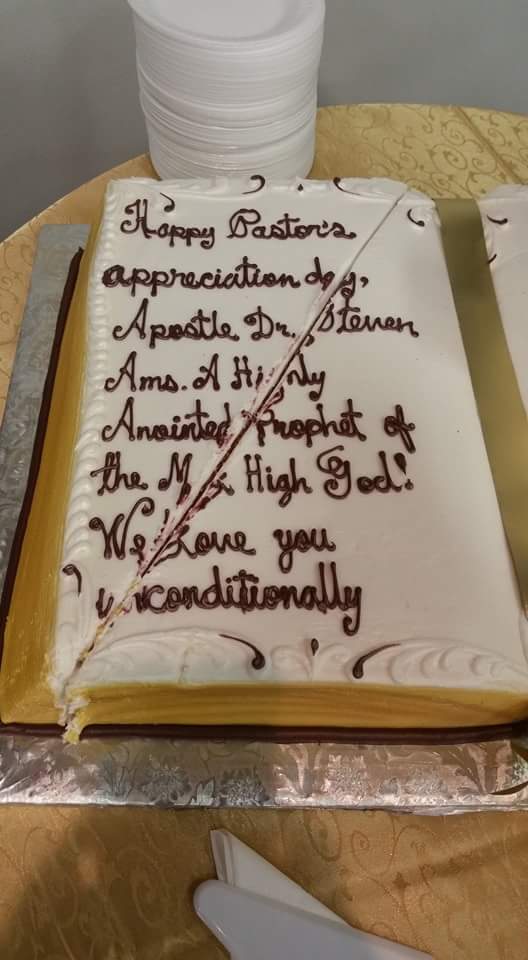 Happy Pastor's
appreciation day,
Apostle Dr., Steven
Ams. A Highly
Anointed Prophet of
the High God!
We Love you
unconditionally